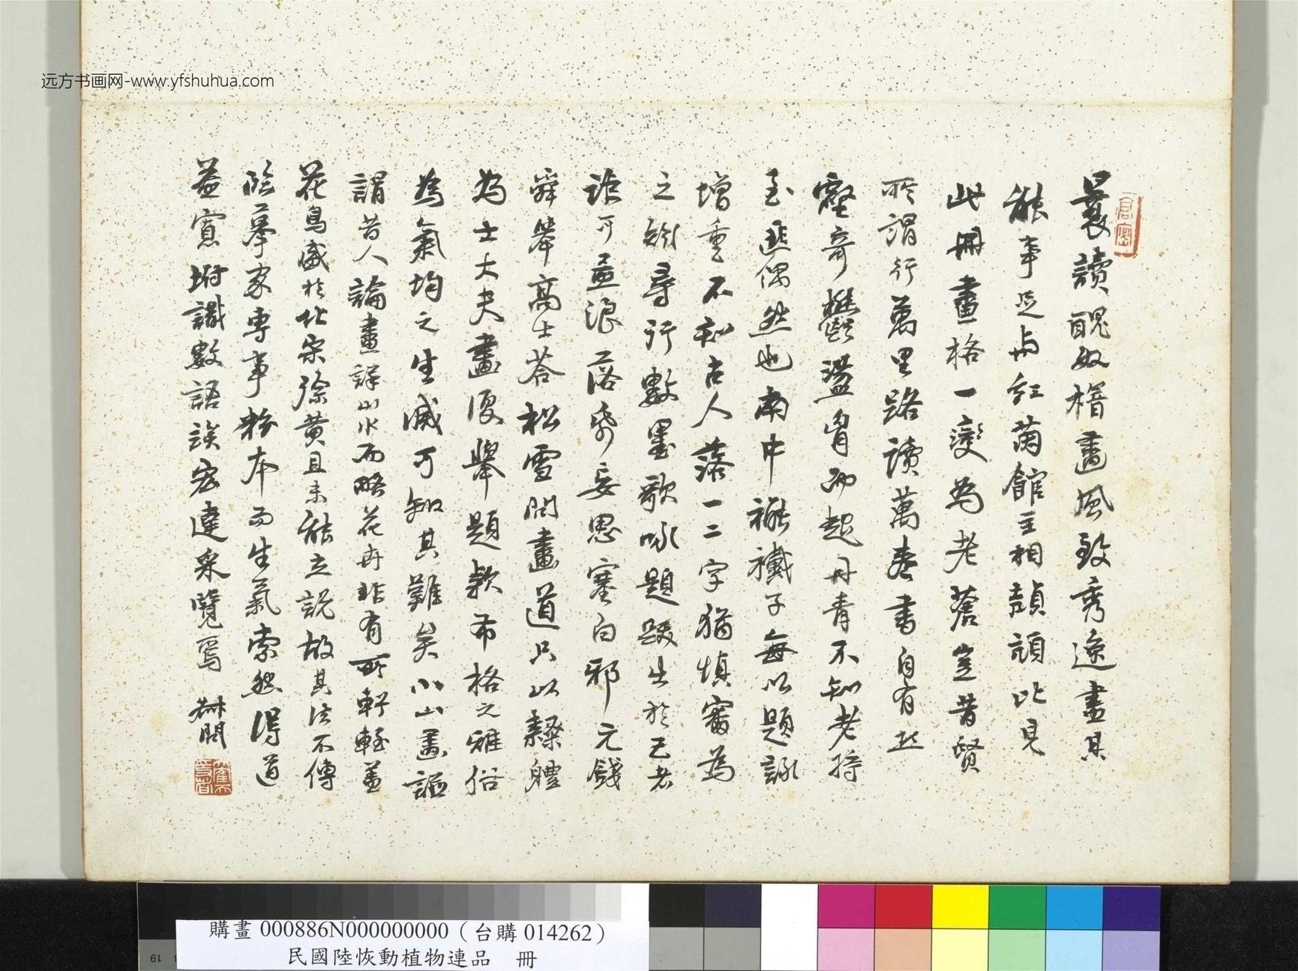 远方书画网-www.yfshuhua.com
曩讀醜奴楷畫風致秀逸盡其
能事足与紅蘭館主相頡頏比見
此冊畫格一變為老蒼豈昔賢
所謂行萬里路讀萬卷書自有丘
壑奇鬱盪胷而起丹青不知老將
至匪偶然也南中襪子每以題詠
增重不知古人落一二字猶慎審為
之尋行數墨歌咏題跋出於己者
詎可孟浪落筆妄思塞白邪元錢
舜舉高士荅松雪問畫道只以隸體
為士大夫畫復舉題款布格之雅俗
為氣均之生滅可知其難矣小山畫譜
謂昔人論畫詳山水而略花卉非有所軒輊蓋
花鳥盛於北宋徐黃且未能立說故其法不傳
臨摹家專事粉本而生氣索然得道
益實坿識數語諓宏達采覽焉
購畫 000886N000000000(台購 014262)
民國陸恢動植物連品 冊
19